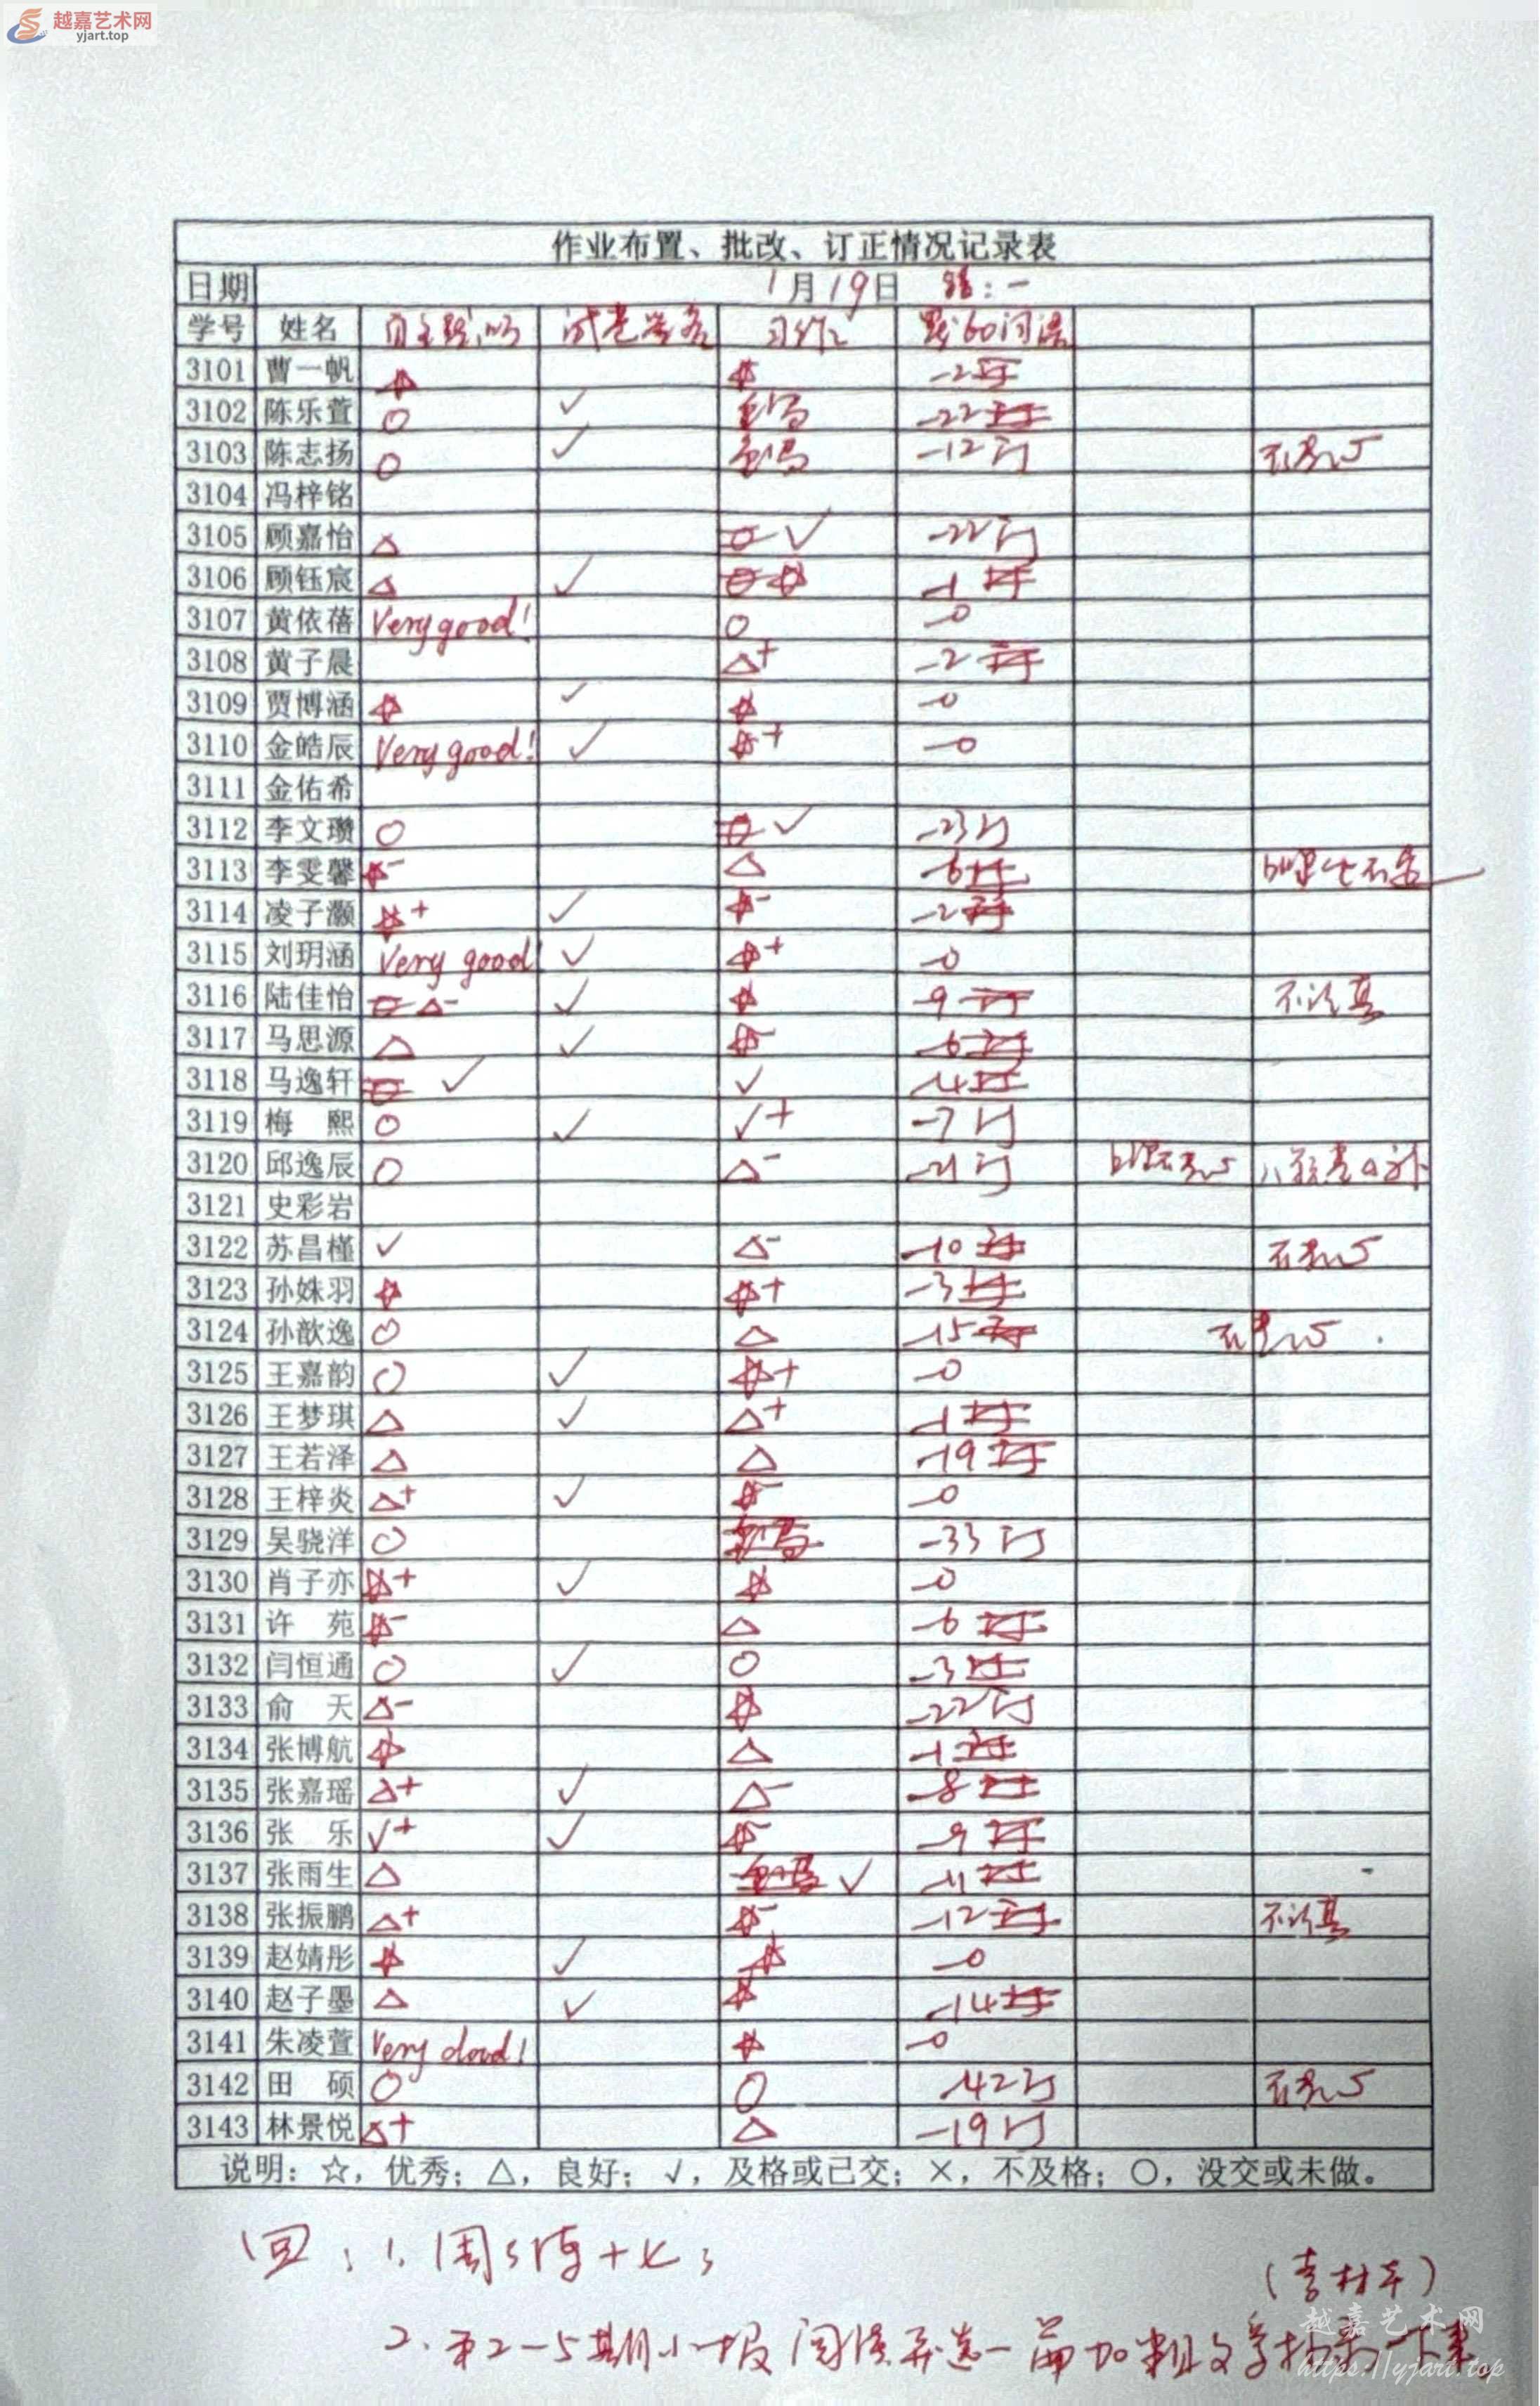 越嘉艺术网
yjart.top
作业布置、批改、订正情况记录表
日期 1月19日
学号 姓名 试卷签名 习作2
3101 曹一帆 ☆ ☆ -2订
3102 陈乐萱 ○ ✓ 重写 -22订
3103 陈志扬 ○ ✓ 重写 -12订
3104 冯梓铭
3105 顾嘉怡 △ ✓ -22订
3106 顾钰宸 △ ✓ ☆ -1订
3107 黄依蓓 Very good! ○ -0
3108 黄子晨 △+ -2订
3109 贾博涵 ☆ ✓ ☆ -0
3110 金皓辰 Very good! ✓ ☆+ -0
3111 金佑希
3112 李文瓒 ○ ✓ -23订
3113 李雯馨 ☆- △ -6订
3114 凌子灏 ☆+ ✓ ☆- -2订
3115 刘玥涵 Very good! ✓ ☆+ -0
3116 陆佳怡 △- ✓ ☆ -9订 不认真
3117 马思源 △ ✓ ☆- -6订
3118 马逸轩 ✓ ✓ -4订
3119 梅 熙 ○ ✓ ✓+ -7订
3120 邱逸辰 ○ △- -21订
3121 史彩岩
3122 苏昌槿 ✓ △- -10订
3123 孙姝羽 ☆ ☆+ -3订
3124 孙歆逸 ○ △ -15订
3125 王嘉韵 ○ ✓ ☆+ -0
3126 王梦琪 △ ✓ △+ -1订
3127 王若泽 △ △ -19订
3128 王梓炎 △+ ✓ ☆- -0
3129 吴骁洋 ○ 重写 -33订
3130 肖子亦 ☆+ ✓ ☆ -0
3131 许 苑 ☆- △ -6订
3132 闫恒通 ○ ✓ ○ -3订
3133 俞 天 △- ☆ -22订
3134 张博航 ☆ △ -1订
3135 张嘉瑶 △+ ✓ △- -8订
3136 张 乐 ✓+ ✓ ☆- -9订
3137 张雨生 △ 重写 ✓ -11订
3138 张振鹏 △+ ☆- -12订 不认真
3139 赵婧彤 ☆ ✓ ☆ -0
3140 赵子墨 △ ✓ ☆ -14订
3141 朱凌萱 Very good! ☆ -0
3142 田 硕 ○ ○ -42订
3143 林景悦 △+ △ -19订
说明：☆，优秀；△，良好；✓，及格或已交；×，不及格；○，没交或未做。
回：1、周
(素材本)
2、第2-5期小报阅读并选一篇
越嘉艺术网
https://yjart.top